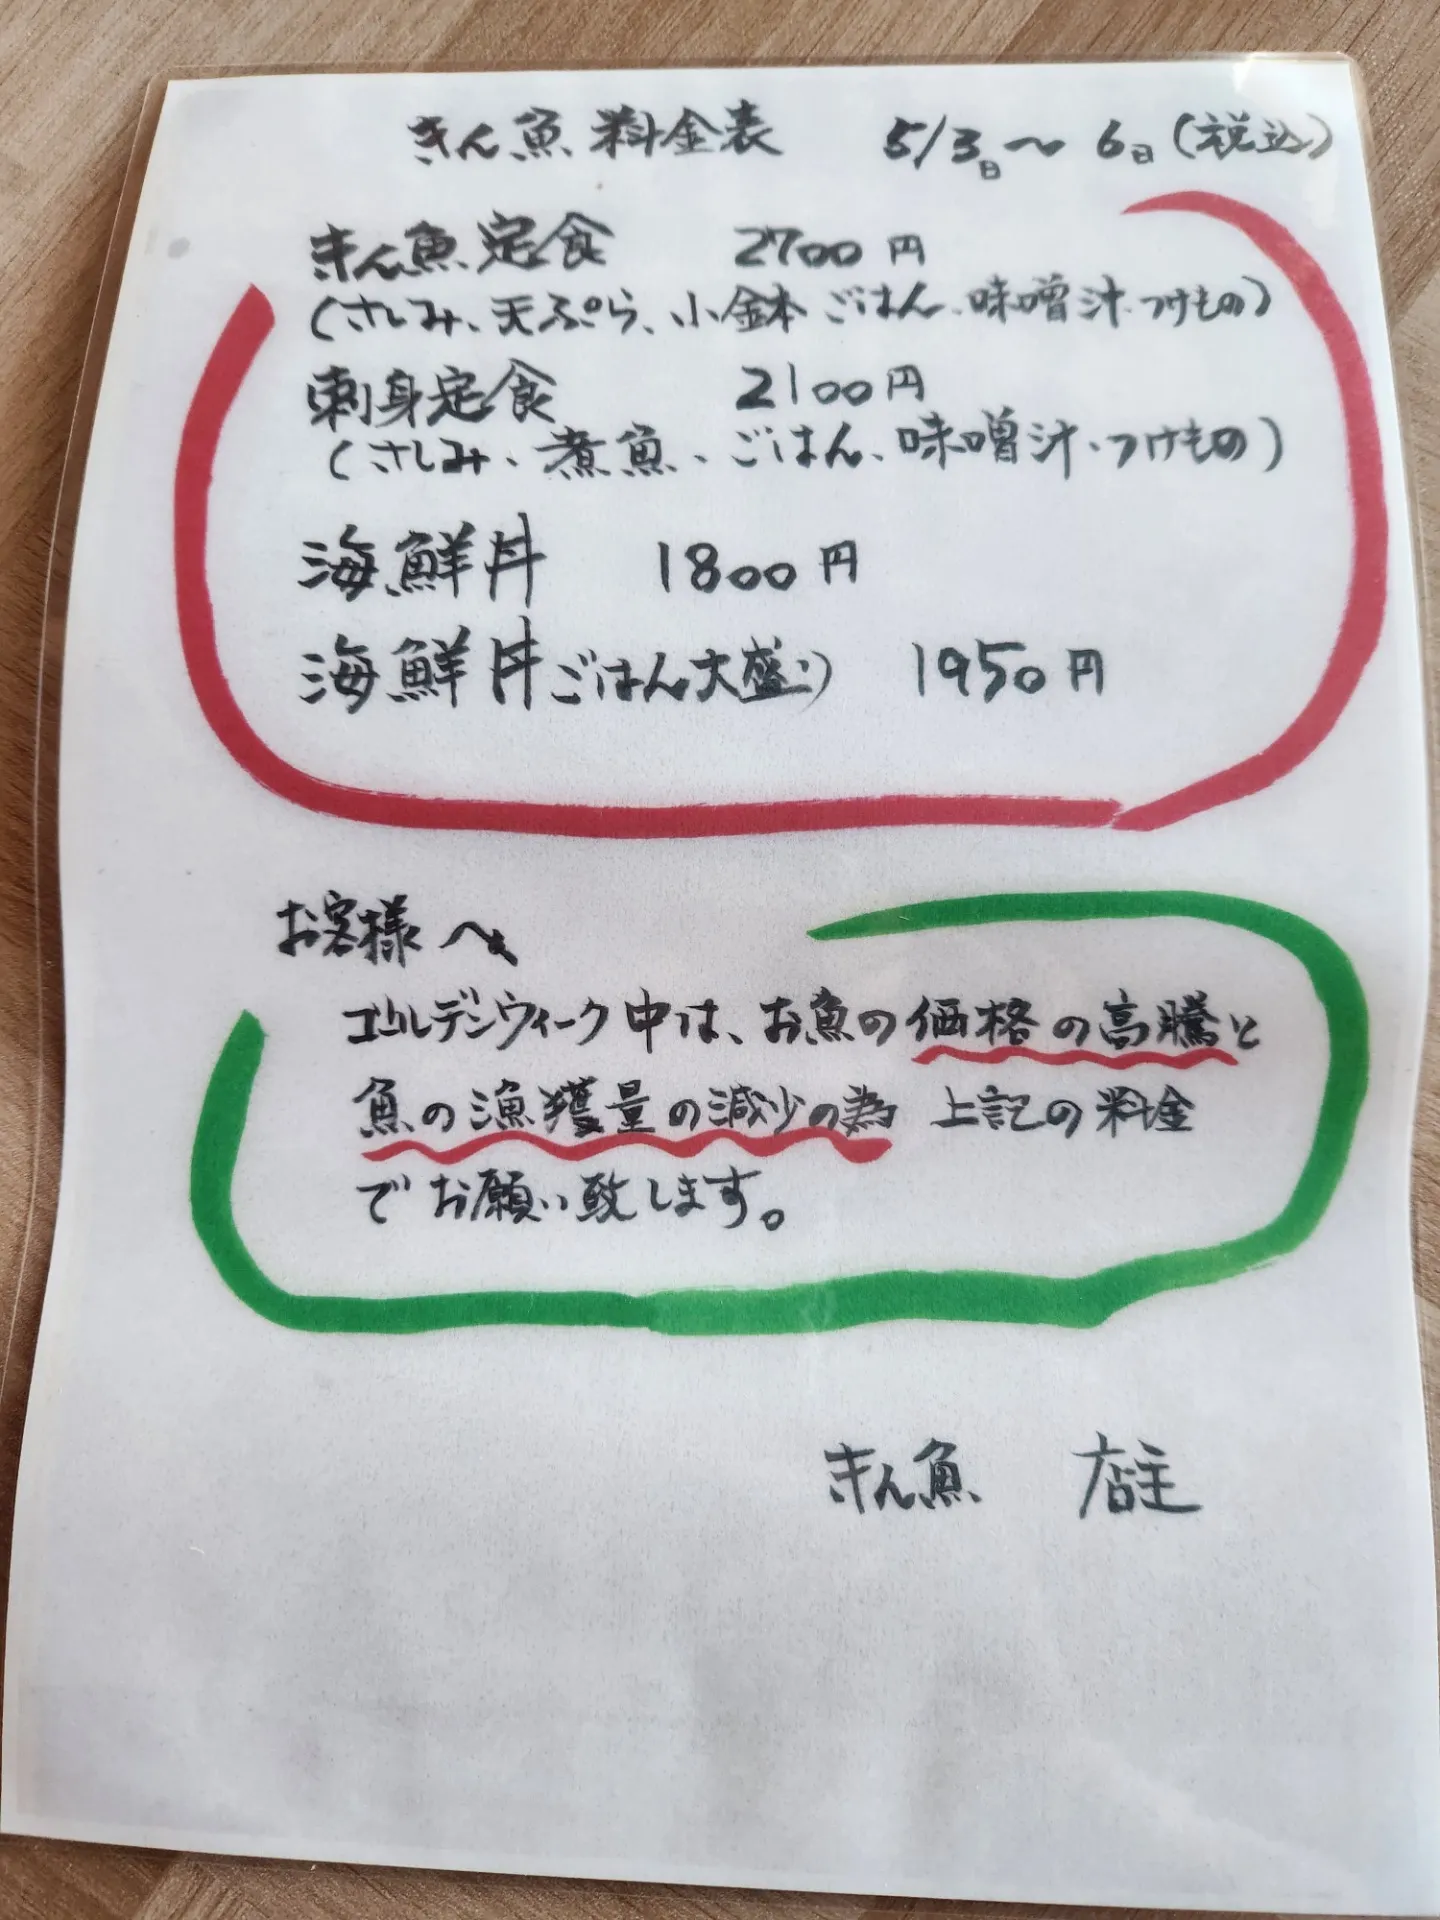 きん魚 料金表 5/3日〜6日(税込)
きん魚定食 2700円
(さしみ、天ぷら、小鉢 ごはん、味噌汁、つけもの)
刺身定食 2100円
(さしみ、煮魚、ごはん、味噌汁、つけもの)
海鮮丼 1800円
海鮮丼ごはん大盛り 1950円
お客様へ
ゴールデンウィーク中は、お魚の価格の高騰と
魚の漁獲量の減少の為 上記の料金
でお願い致します。
きん魚 店主